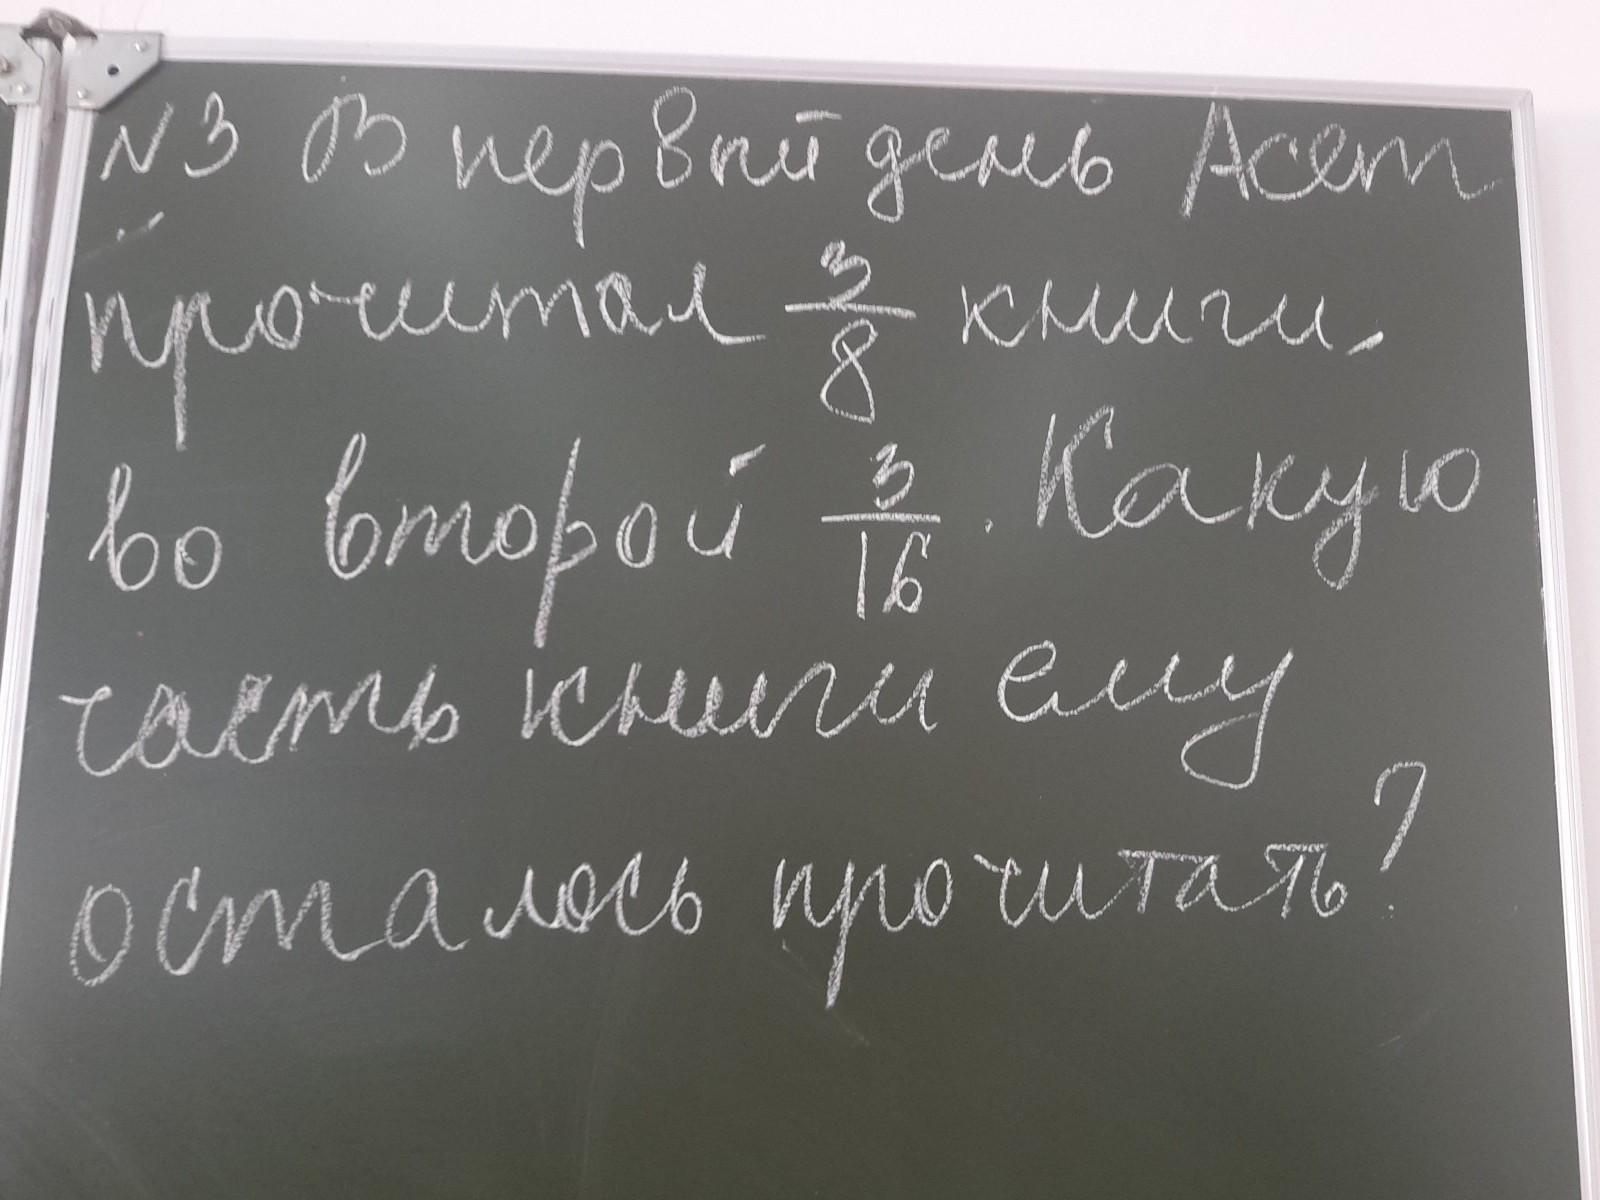 N3 В первый день Асет
прочитал 3/8 книги.
во второй 3/16. Какую
часть книги ему
осталось прочитать?